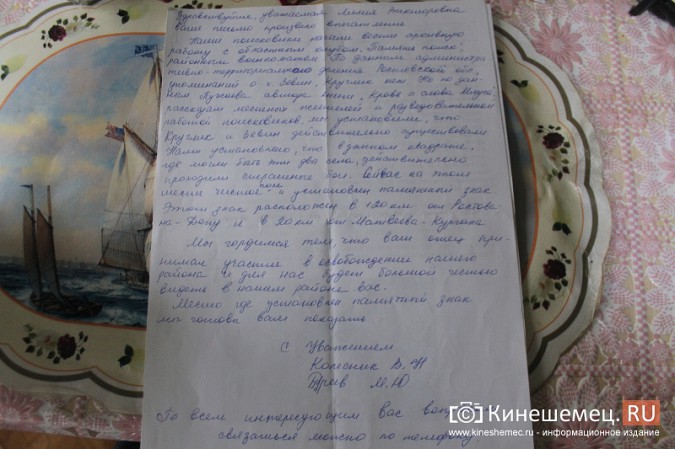 Здравствуйте, уважаемая Лилия
Ваше письмо произвело впечатление
Наши поисковики начали
работу с областным клубом "Память-поиск",
районным военкоматом. По данным администра
тивно-территориального деления Ростовской обл.,
упоминаний о х. Зевин, Круглик нет. Но по дан-
ным автора книги "Кровь и слава Миуса",
рассказам местных жителей и разведовательной
работой поисковиков, мы установили, что
Круглик и Зевин действительно существовали
Нами установлено, что в данном квадрате,
где могли быть эти два села, действительно
проходили бои. Сейчас на этом
месте чистое поле и установлен памятный знак
Этот знак расположен в 120 км от Ростова-
на-Дону и в 20 км от Матвеева-Кургана
Мы гордимся тем, что ваш отец при-
нимал участие в освобождении нашего
района и для нас будет большой честью
видеть в нашем районе вас.
Место где установлен памятный знак
мы готовы вам показать
С Уважением
Колесник В. Н
М. Ю
По всем интересующим вас
связаться можно по телефону
Кинешемец.RU
www.kineshemec.ru - информационное издание